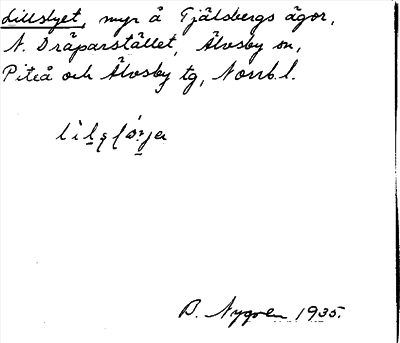 Lillslyet, myr å Tjälsbergs ägor,
N. Dräparstället, Älvsby sn,
Piteå och Älvsby tg, Norrb. l.
B. Nygren 1935.